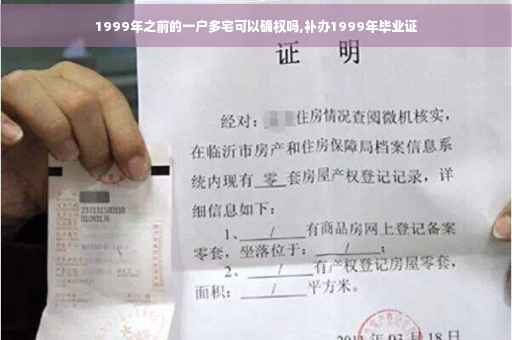 1999年之前的一户多宅可以确权吗,补办1999年毕业证
证 明
经对：住房情况查阅微机核实，
在临沂市房产和住房保障局档案信息系
统内现有 零 套房屋产权登记记录，详
细信息如下：
1、 / 有商品房网上登记备案
零套，坐落位于： / ；
2、 / 有产权登记房屋零套，
面积： / 平方米。
03月18日